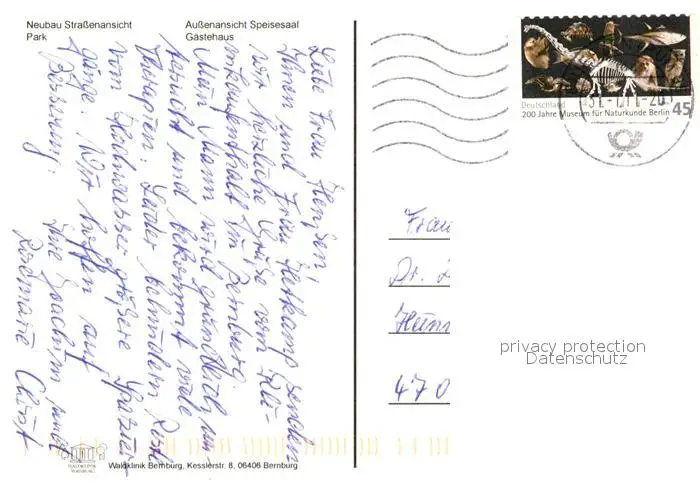 Neubau Straßenansicht
Park
Außenansicht Speisesaal
Gästehaus
Liebe Frau
Ihnen und Frau senden
wir herzliche Grüße vom
in Bernburg.
Mein Mann wird gründlich un-
tersucht und bekommt viele
Therapien. Leider behindern Reste
vom Hochwasser größere Spazier-
gänge. Wir hoffen auf
Besserung. Ihre Joachim und
Rosmarie Christ
Deutschland
200 Jahre Museum für Naturkunde Berlin
45
Frau
Dr.
470
privacy protection
Datenschutz
WALDKLINIK
BERNBURG
Waldklinik Bernburg, Kesslerstr. 8, 06406 Bernburg